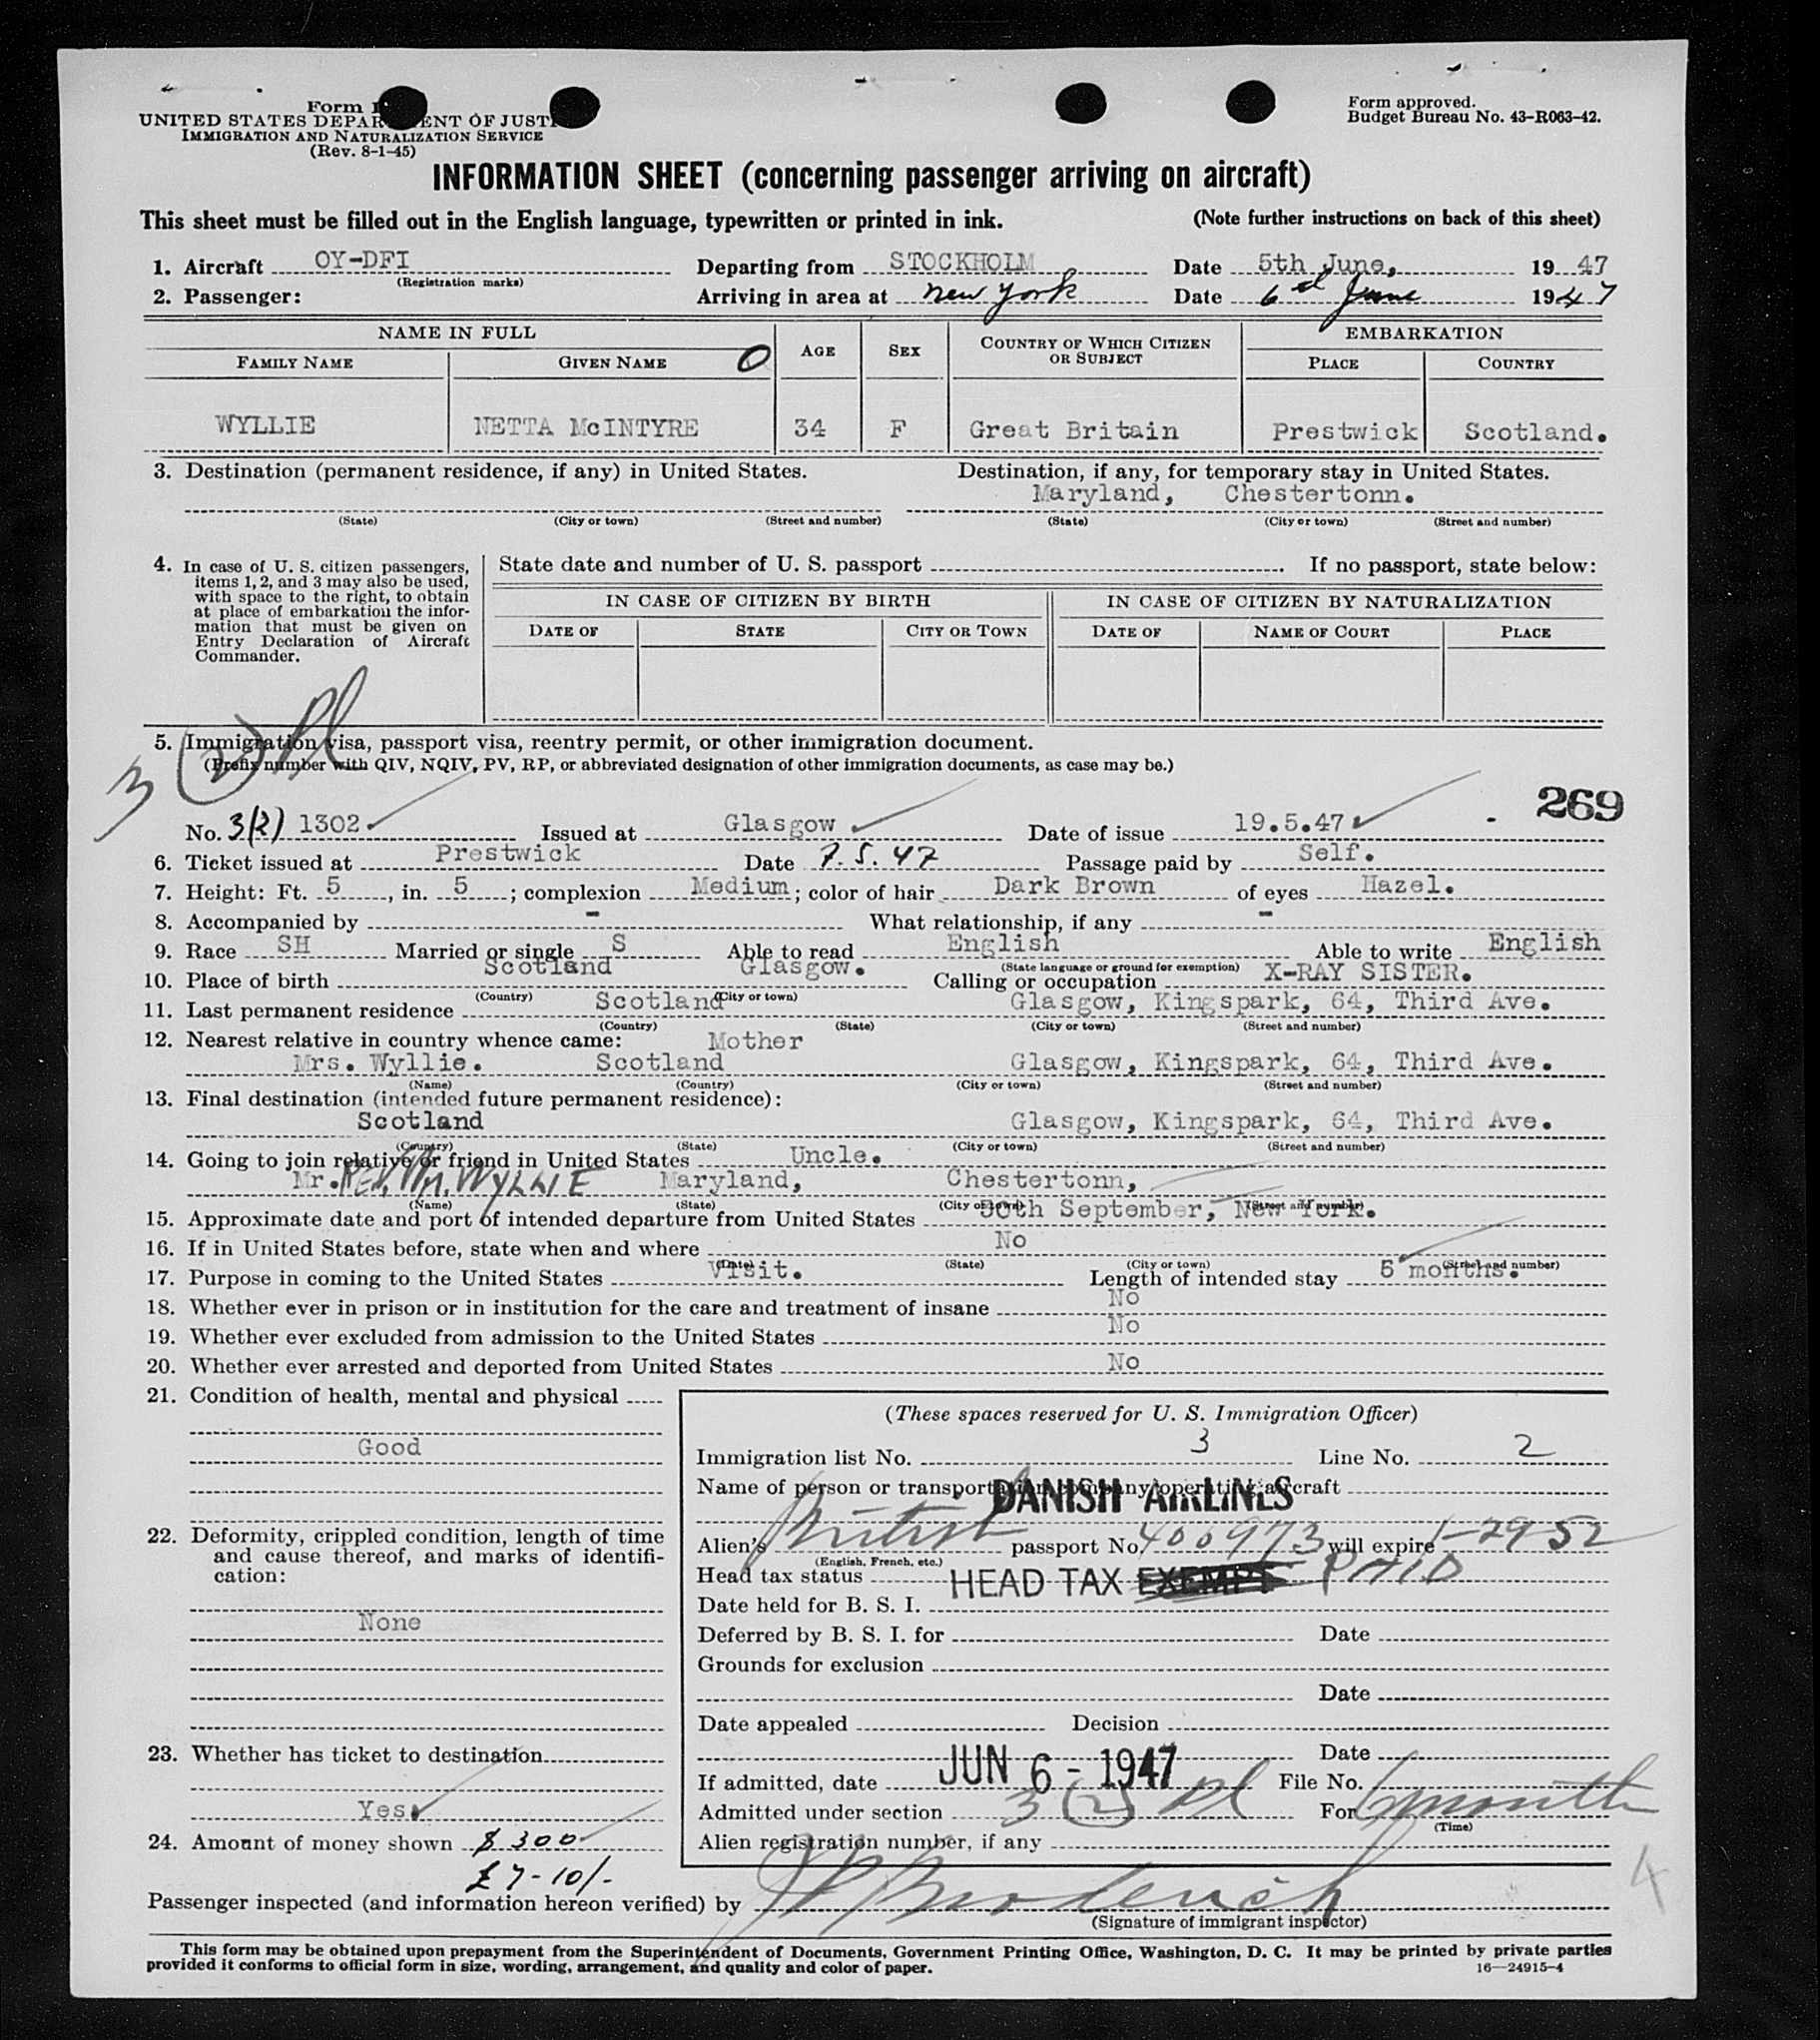 Form I
UNITED STATES DEPAR ENT OF JUSTI
IMMIGRATION AND NATURALIZATION SERVICE
(Rev. 8-1-45)
Form approved.
Budget Bureau No. 43-R063-42.
INFORMATION SHEET (concerning passenger arriving on aircraft)
This sheet must be filled out in the English language, typewritten or printed in ink. (Note further instructions on back of this sheet)
1. Aircraft OY-DFI Departing from STOCKHOLM Date 5th June, 19 47
(Registration marks)
2. Passenger: Arriving in area at New York Date 6th June 1947
NAME IN FULL AGE SEX COUNTRY OF WHICH CITIZEN OR SUBJECT EMBARKATION
FAMILY NAME GIVEN NAME O PLACE COUNTRY
WYLLIE NETTA McINTYRE 34 F Great Britain Prestwick Scotland.
3. Destination (permanent residence, if any) in United States. Destination, if any, for temporary stay in United States.
Maryland, Chestertonn.
(State) (City or town) (Street and number) (State) (City or town) (Street and number)
4. In case of U. S. citizen passengers, items 1, 2, and 3 may also be used, with space to the right, to obtain at place of embarkation the information that must be given on Entry Declaration of Aircraft Commander.
State date and number of U. S. passport If no passport, state below:
IN CASE OF CITIZEN BY BIRTH IN CASE OF CITIZEN BY NATURALIZATION
DATE OF STATE CITY OR TOWN DATE OF NAME OF COURT PLACE
3 (2) Pl
5. Immigration visa, passport visa, reentry permit, or other immigration document.
(Prefix number with QIV, NQIV, PV, RP, or abbreviated designation of other immigration documents, as case may be.)
269
No. 3(2) 1302 Issued at Glasgow Date of issue 19.5.47
6. Ticket issued at Prestwick Date 7.5.47 Passage paid by Self.
7. Height: Ft. 5, in. 5; complexion Medium; color of hair Dark Brown of eyes Hazel.
8. Accompanied by - What relationship, if any -
9. Race SH Married or single S Able to read English Able to write English
(State language or ground for exemption)
10. Place of birth Scotland Glasgow. Calling or occupation X-RAY SISTER.
(Country) (City or town)
11. Last permanent residence Scotland Glasgow, Kingspark, 64, Third Ave.
(Country) (State) (City or town) (Street and number)
12. Nearest relative in country whence came: Mother
Mrs. Wyllie. Scotland Glasgow, Kingspark, 64, Third Ave.
(Name) (Country) (City or town) (Street and number)
13. Final destination (intended future permanent residence):
Scotland Glasgow, Kingspark, 64, Third Ave.
(Country) (State) (City or town) (Street and number)
14. Going to join relative or friend in United States Uncle.
Mr. REV. WM. WYLLIE Maryland, Chestertonn,
(Name) (State) (City or town) (Street and number)
15. Approximate date and port of intended departure from United States 30th September, New York.
16. If in United States before, state when and where No
(Date) (State) (City or town) (Street and number)
17. Purpose in coming to the United States Visit. Length of intended stay 5 months.
18. Whether ever in prison or in institution for the care and treatment of insane No
19. Whether ever excluded from admission to the United States No
20. Whether ever arrested and deported from United States No
21. Condition of health, mental and physical
Good
22. Deformity, crippled condition, length of time and cause thereof, and marks of identification:
None
23. Whether has ticket to destination
Yes.
24. Amount of money shown $ 300
£ 7-10/-
(These spaces reserved for U. S. Immigration Officer)
Immigration list No. 3 Line No. 2
Name of person or transportation company operating aircraft
DANISH AIRLINES
Alien's British passport No. 400973 will expire 1-29-52
(English, French, etc.)
Head tax status HEAD TAX EXEMPT PAID
Date held for B. S. I.
Deferred by B. S. I. for Date
Grounds for exclusion
Date
Date appealed Decision
Date
If admitted, date JUN 6 - 1947 File No.
Admitted under section 3 (2) Pl For 6 months
(Time)
Alien registration number, if any
4
Passenger inspected (and information hereon verified) by
(Signature of immigrant inspector)
This form may be obtained upon prepayment from the Superintendent of Documents, Government Printing Office, Washington, D. C. It may be printed by private parties
provided it conforms to official form in size, wording, arrangement, and quality and color of paper. 16—24915-4